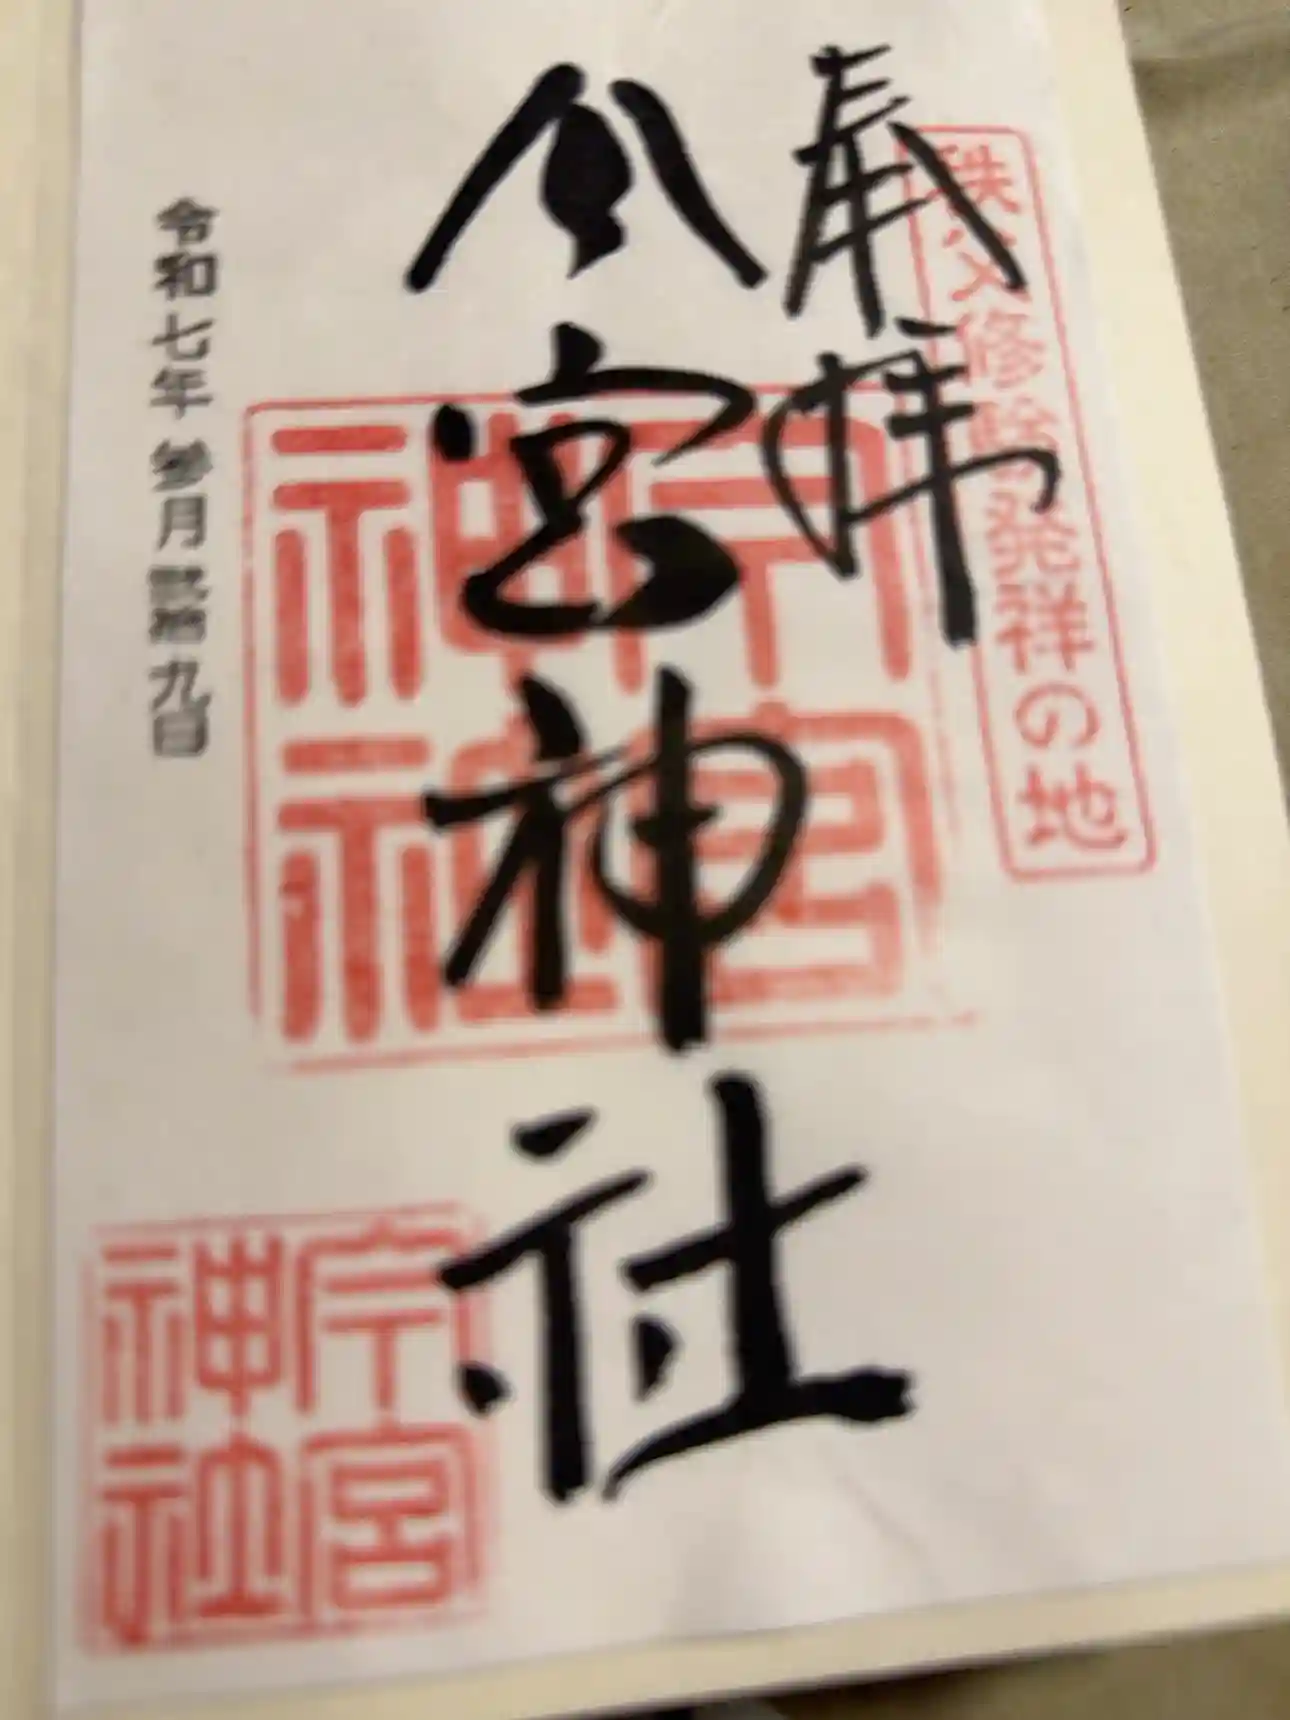 秩父修験発祥の地
奉拝
今宮神社
令和七年参月弐拾九日
今宮
神社
今宮
神社